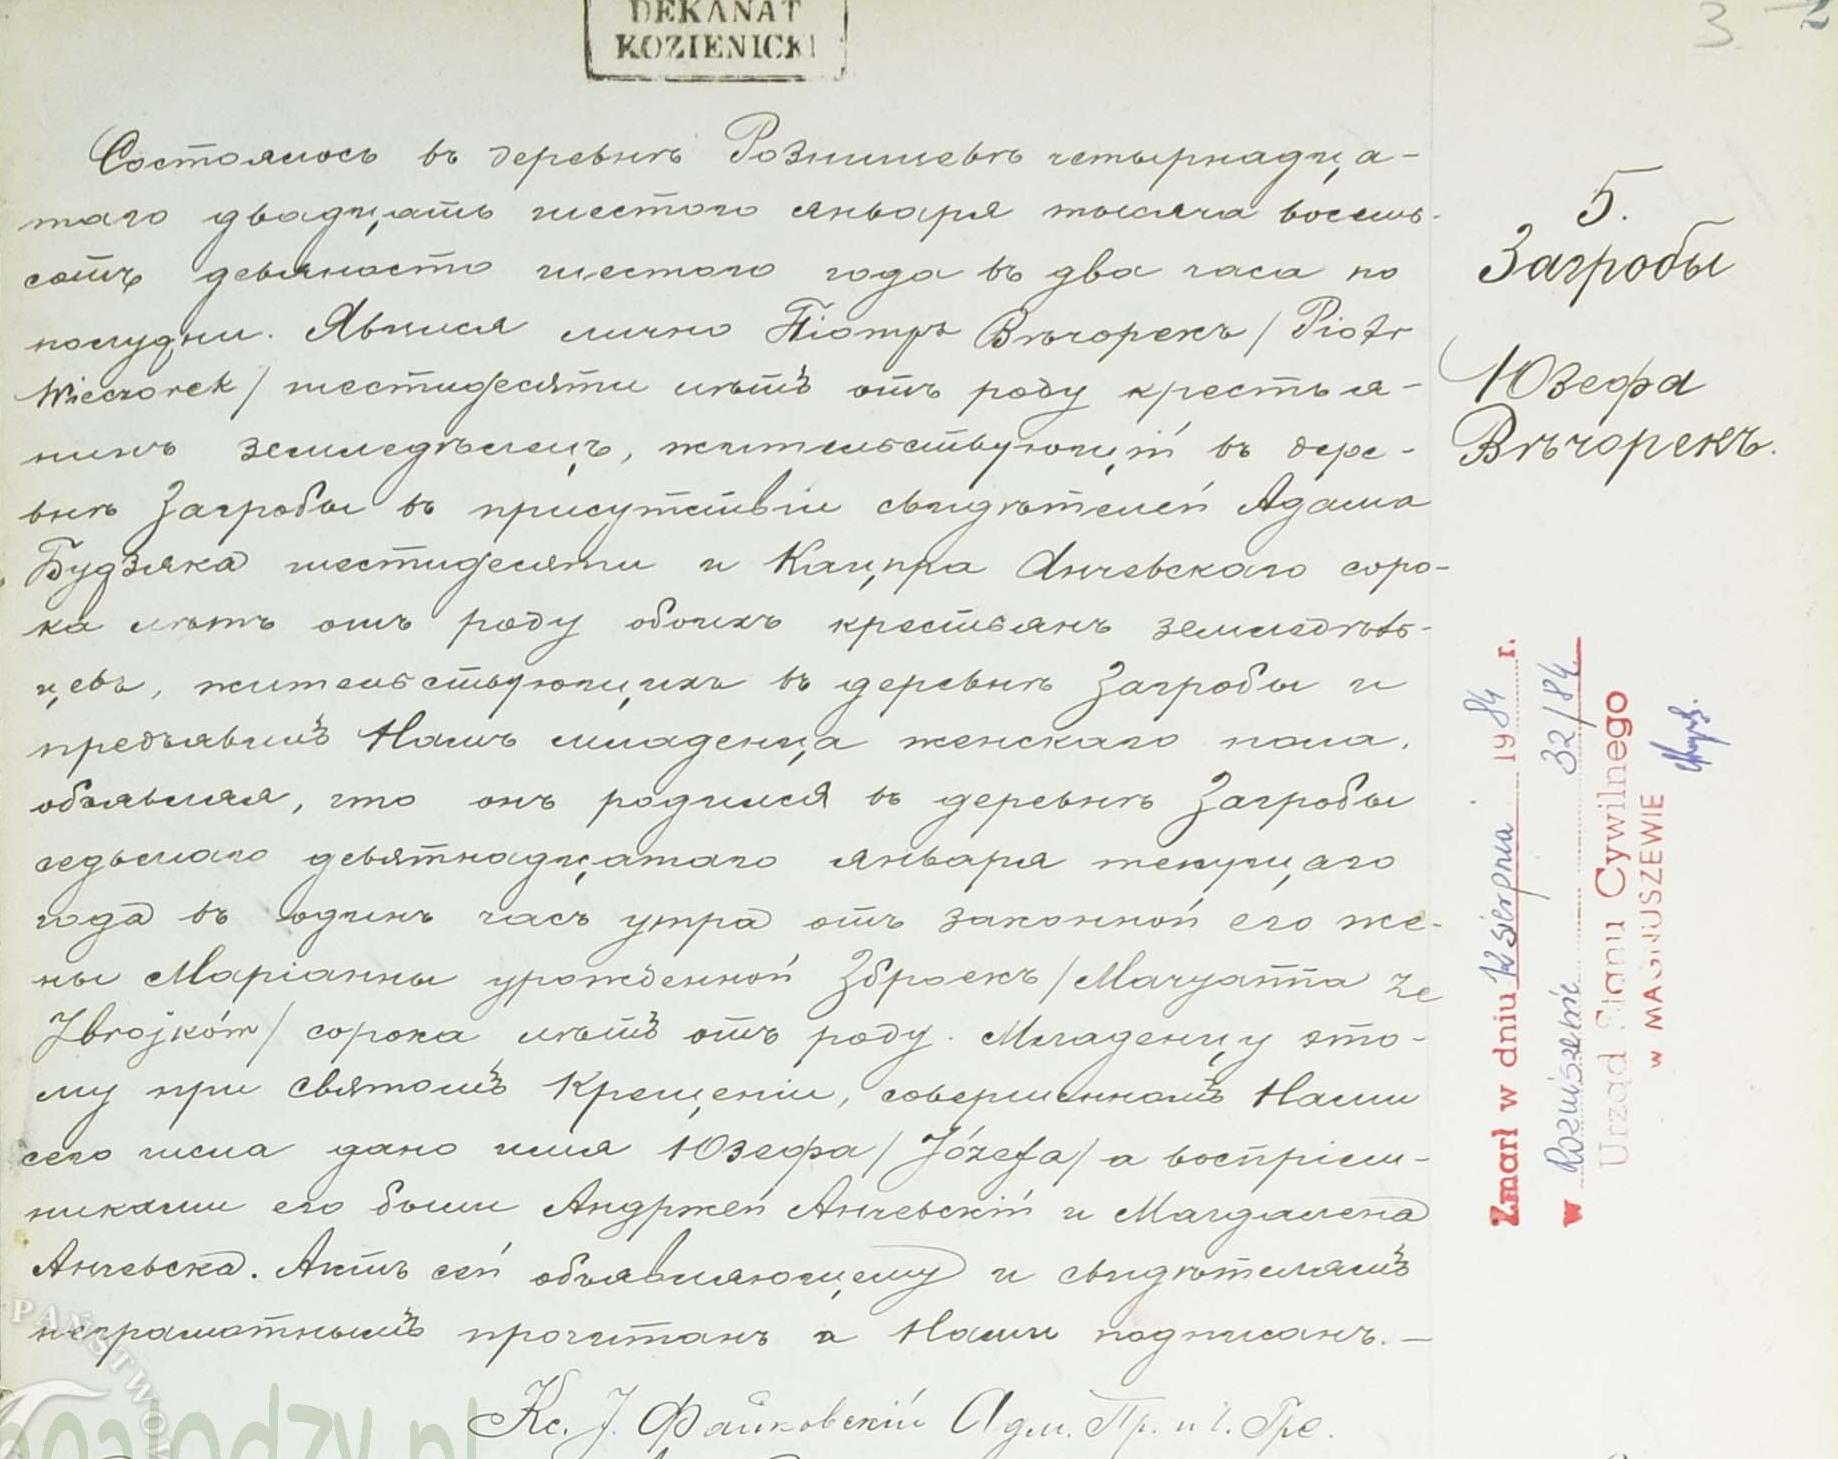 DEKANAT
KOZIENICKI
3
Состоялось въ деревнѣ Рознишевѣ четырнадца-
таго двадцать шестого января тысяча восемь-
сотъ девяносто шестого года въ два часа по
полудни. Явился лично Піотръ Вѣчорекъ / Piotr
Wieczorek / шестидесяти лѣтъ отъ роду крестья-
нинъ земледѣлецъ, жительствующій въ дере-
внѣ Загробы въ присутствіи свидѣтелей Адама
Будзяка шестидесяти и Кацпра Анчевскаго соро-
ка лѣтъ отъ роду обоихъ крестьянъ земледѣль-
цевъ, жительствующихъ въ деревнѣ Загробы и
предъявилъ Намъ младенца женскаго пола,
объявляя, что онъ родился въ деревнѣ Загробы
седьмаго девятнадцатаго января текущаго
года въ одинъ часъ утра отъ законной его же-
ны Маріанны урожденной Зброекъ / Maryanna ze
Zbrojków / сорока лѣтъ отъ роду. Младенцу это-
му при святомъ Крещеніи, совершенномъ Нами
сего числа дано имя Юзефа / Józefa / а воспріем-
никами его были Андржей Анчевскій и Магдалена
Анчевска. Актъ сей объявляющему и свидѣтелямъ
неграмотнымъ прочитанъ и Нами подписанъ. —
Кс. J. Файковскій Адм. Пр.
5.
Загробы
Юзефа
Вѣчорекъ.
Zmarł w dniu 12 sierpnia 1984 r.
w Rozniszewie 32/84
Urząd Stanu Cywilnego
w MAGNUSZEWIE
PAŃSTWOW